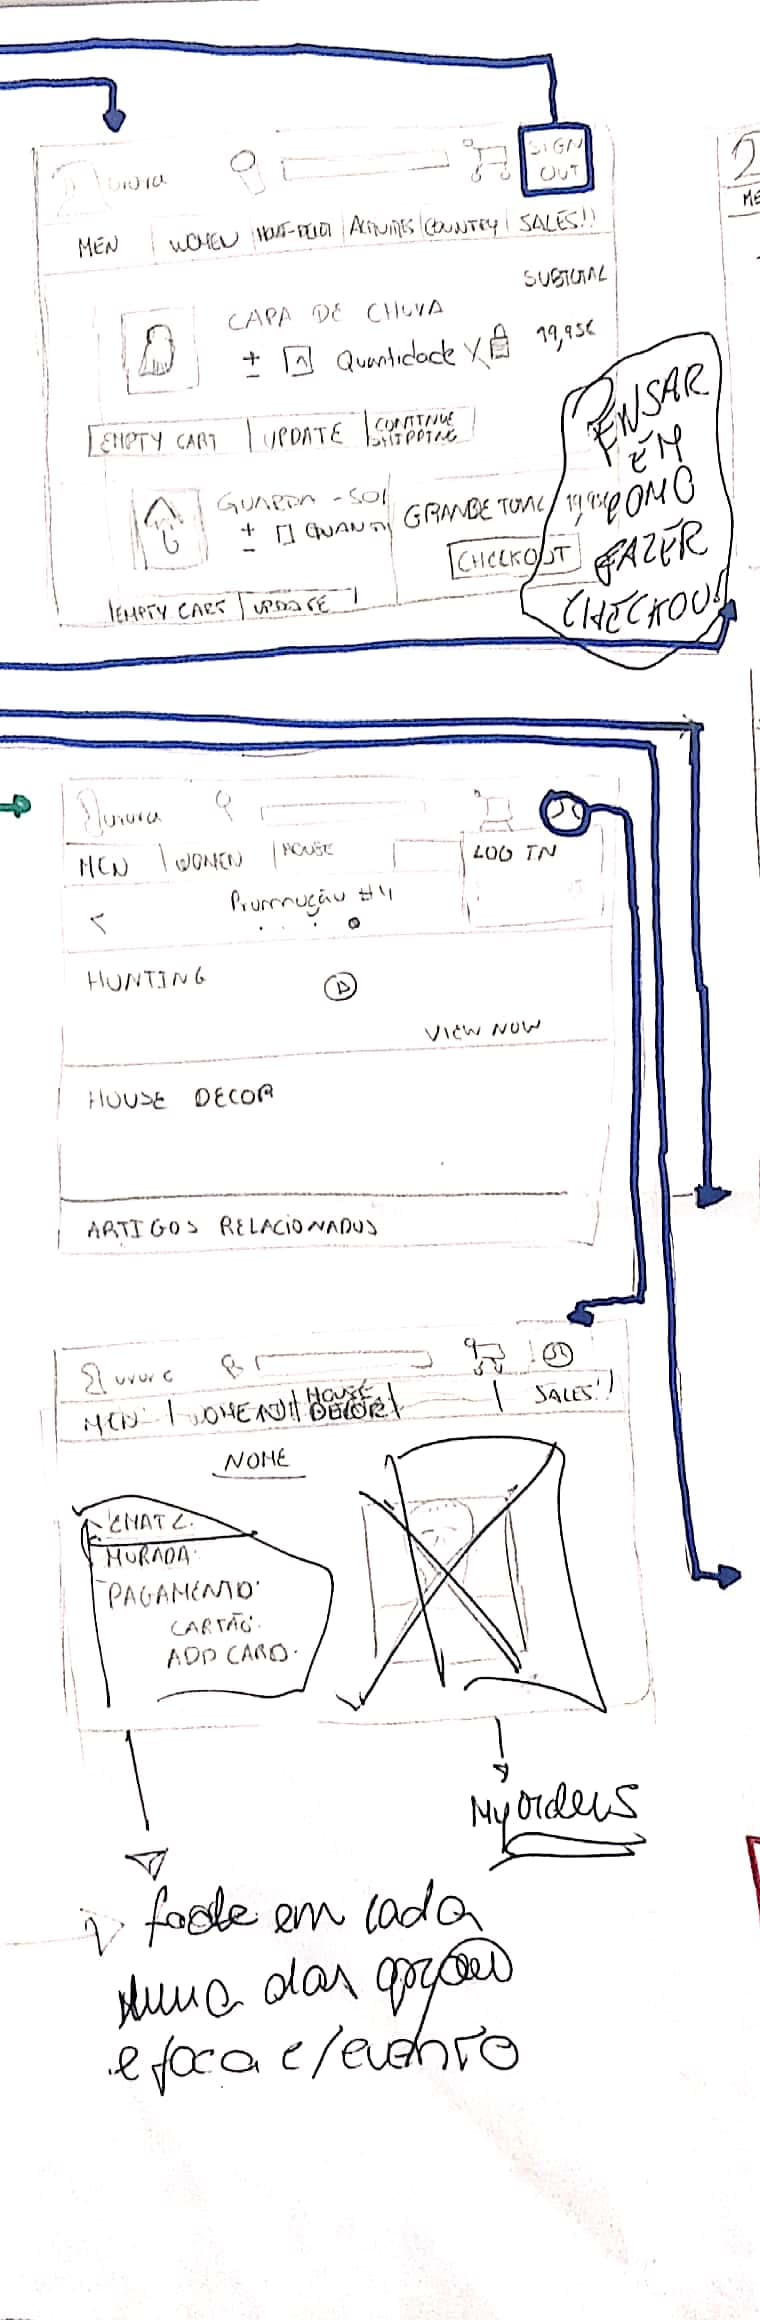 SIGN
OUT
MEN | WOMEN | | ACTIVITIES | COUNTRY | SALES!!
SUBTOTAL
CAPA DE CHUVA
+ - 1 Quantidade X 19,95€
EMPTY CART | UPDATE | CONTINUE
SHIPPING
GUARDA-SOL
+ - QUANTI
GRANDE TOTAL 19,95
CHECKOUT
EMPTY CART | UPDATE |
PENSAR
EM
COMO
FAZER
CHECKOUT
MEN | WOMEN | HOUSE
LOG IN
< #4
HUNTING
VIEW NOW
HOUSE DECOR
ARTIGOS RELACIONADOS
MEN | WOMEN | HOUSE
DECOR | | SALES!!
NOME
MORADA:
PAGAMENTO:
CARTÃO:
ADD CARD.
My orders
em cada
uma das opções
e foca c/evento